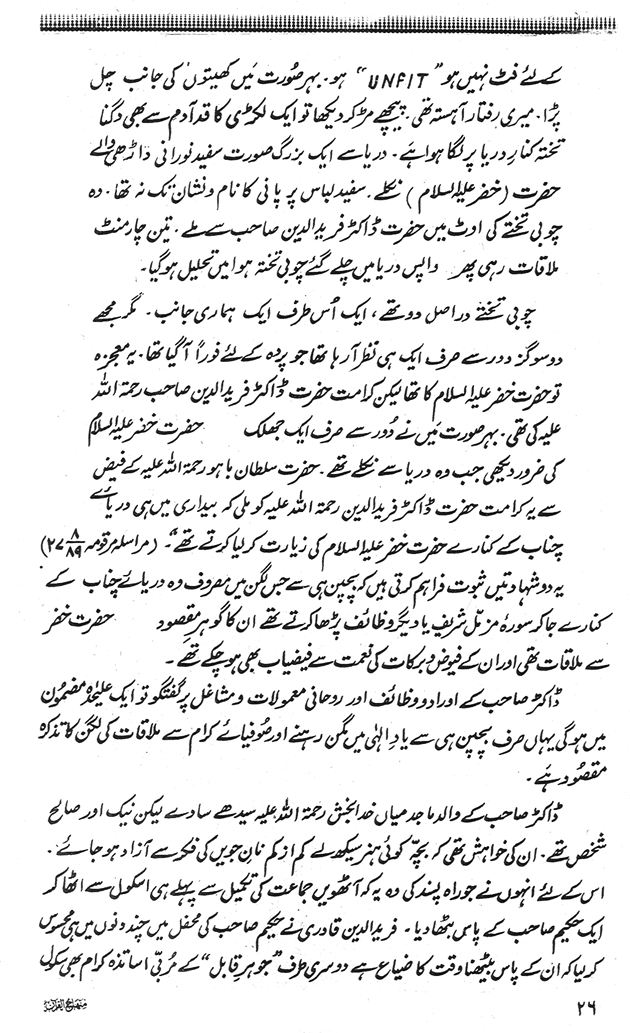 کے لئے فٹ نہیں ہو "UNFIT" ہو۔ بہر صورت میں کھیتوں کی جانب چل
پڑا۔ میری رفتار آہستہ تھی۔ پیچھے مڑ کر دیکھا تو ایک لکڑی کا قد آدم سے بھی دگنا
تختہ کنار دریا پر لگا ہوا ہے۔ دریا سے ایک بزرگ صورت سفید نورانی داڑھی والے
حضرت (خضر علیہ السلام) نکلے۔ سفید لباس پر پانی کا نام و نشان تک نہ تھا۔ وہ
چوبی تختے کی اوٹ میں حضرت ڈاکٹر فرید الدین صاحب سے ملے۔ تین چار منٹ
ملاقات رہی پھر واپس دریا میں چلے گئے چوبی تختہ ہوا میں تحلیل ہو گیا۔
چوبی تختے دراصل دو تھے، ایک اُس طرف ایک ہماری جانب۔ مگر مجھے
دو سو گز دور سے صرف ایک ہی نظر آ رہا تھا جو پردہ کے لئے فوراً آ گیا تھا۔ یہ معجزہ
تو حضرت خضر علیہ السلام کا تھا لیکن کرامت حضرت ڈاکٹر فرید الدین صاحب رحمۃ اللہ
علیہ کی تھی۔ بہر صورت میں نے دُور سے صرف ایک جھلک حضرت خضر علیہ السلام
کی ضرور دیکھی جب وہ دریا سے نکلے تھے۔ حضرت سلطان باہو رحمۃ اللہ علیہ کے فیض
سے یہ کرامت حضرت ڈاکٹر فرید الدین رحمۃ اللہ علیہ کو ملی کہ بیداری میں ہی دریائے
چناب کے کنارے حضرت خضر علیہ السلام کی زیارت کر لیا کرتے تھے"۔ (مراسلہ مرقومہ ۸/۸۹ ۲۷)
یہ دو شہادتیں ثبوت فراہم کرتی ہیں کہ بچپن ہی سے جس لگن میں مصروف وہ دریائے چناب کے
کنارے جا کر سورہ مزمل شریف یا دیگر وظائف پڑھا کرتے تھے ان کا گوہر مقصود حضرت خضر
سے ملاقات تھی اور ان کے فیوض و برکات کی نعمت سے فیضیاب بھی ہو چکے تھے۔
ڈاکٹر صاحب کے اوراد و وظائف اور روحانی معمولات و مشاغل پر گفتگو تو ایک علیٰحدہ مضمون
میں ہو گی یہاں صرف بچپن ہی سے یادِ الٰہی میں مگن رہنے اور صوفیائے کرام سے ملاقات کی لگن کا تذکرہ
مقصود ہے۔
ڈاکٹر صاحب کے والد ماجد میاں خدا بخش رحمۃ اللہ علیہ سیدھے سادے لیکن نیک اور صالح
شخص تھے۔ ان کی خواہش تھی کہ بچہ کوئی ہنر سیکھ لے کم از کم نان جویں کی فکر سے آزاد ہو جائے۔
اس کے لئے انہوں نے جو راہ پسند کی وہ یہ کہ آٹھویں جماعت کی تکمیل سے پہلے ہی اسکول سے اٹھا کر
ایک حکیم صاحب کے پاس بٹھا دیا۔ فرید الدین قادری نے حکیم صاحب کی محفل میں چند دنوں میں ہی محسوس
کر لیا کہ ان کے پاس بیٹھنا وقت کا ضیاع ہے دوسری طرف "جوہر قابل" کے مُربّی اساتذہ کرام بھی سکول
۲۶ منہاج القرآن